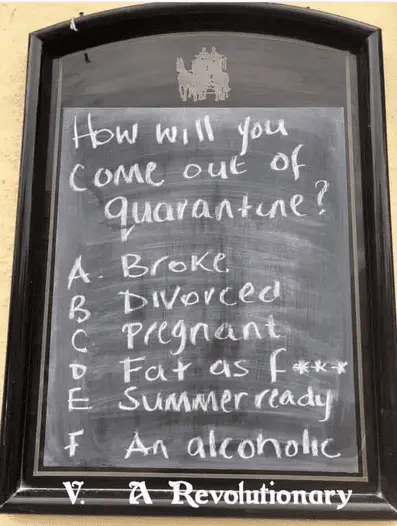 How will you
come out of
quarantine?
A. Broke
B Divorced
C Pregnant
D Fat as f***
E Summer ready
F An alcoholic
V. A Revolutionary